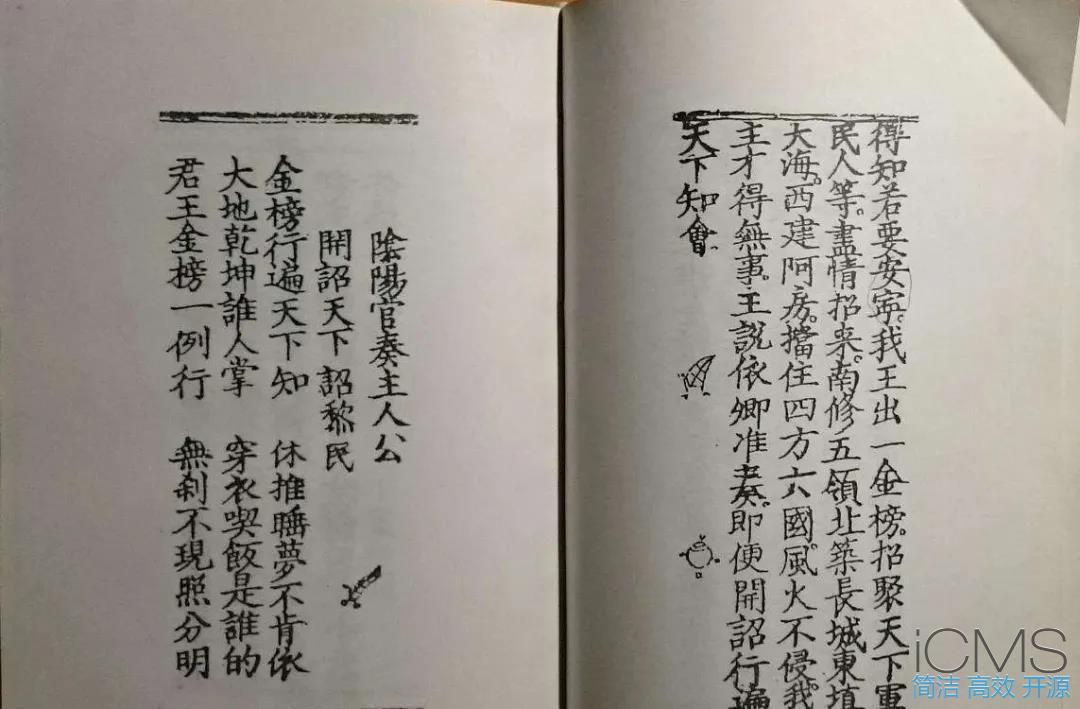 得知若要安寧。我王出一金榜。招聚天下軍
民人等。盡情招来。南修五領北築長城東填
大海。西建阿房。擋住四方六國。風火不侵。我
主才得無事。王說依卿准奏。即便開詔行遍
天下知會。
陰陽官奏主人公
開詔天下詔黎民
金榜行遍天下知 休推睡夢不肯依
大地乾坤誰人掌 穿衣喫飯是誰的
君王金榜一例行 無刹不現照分明
iCMS
简洁 高效 开源